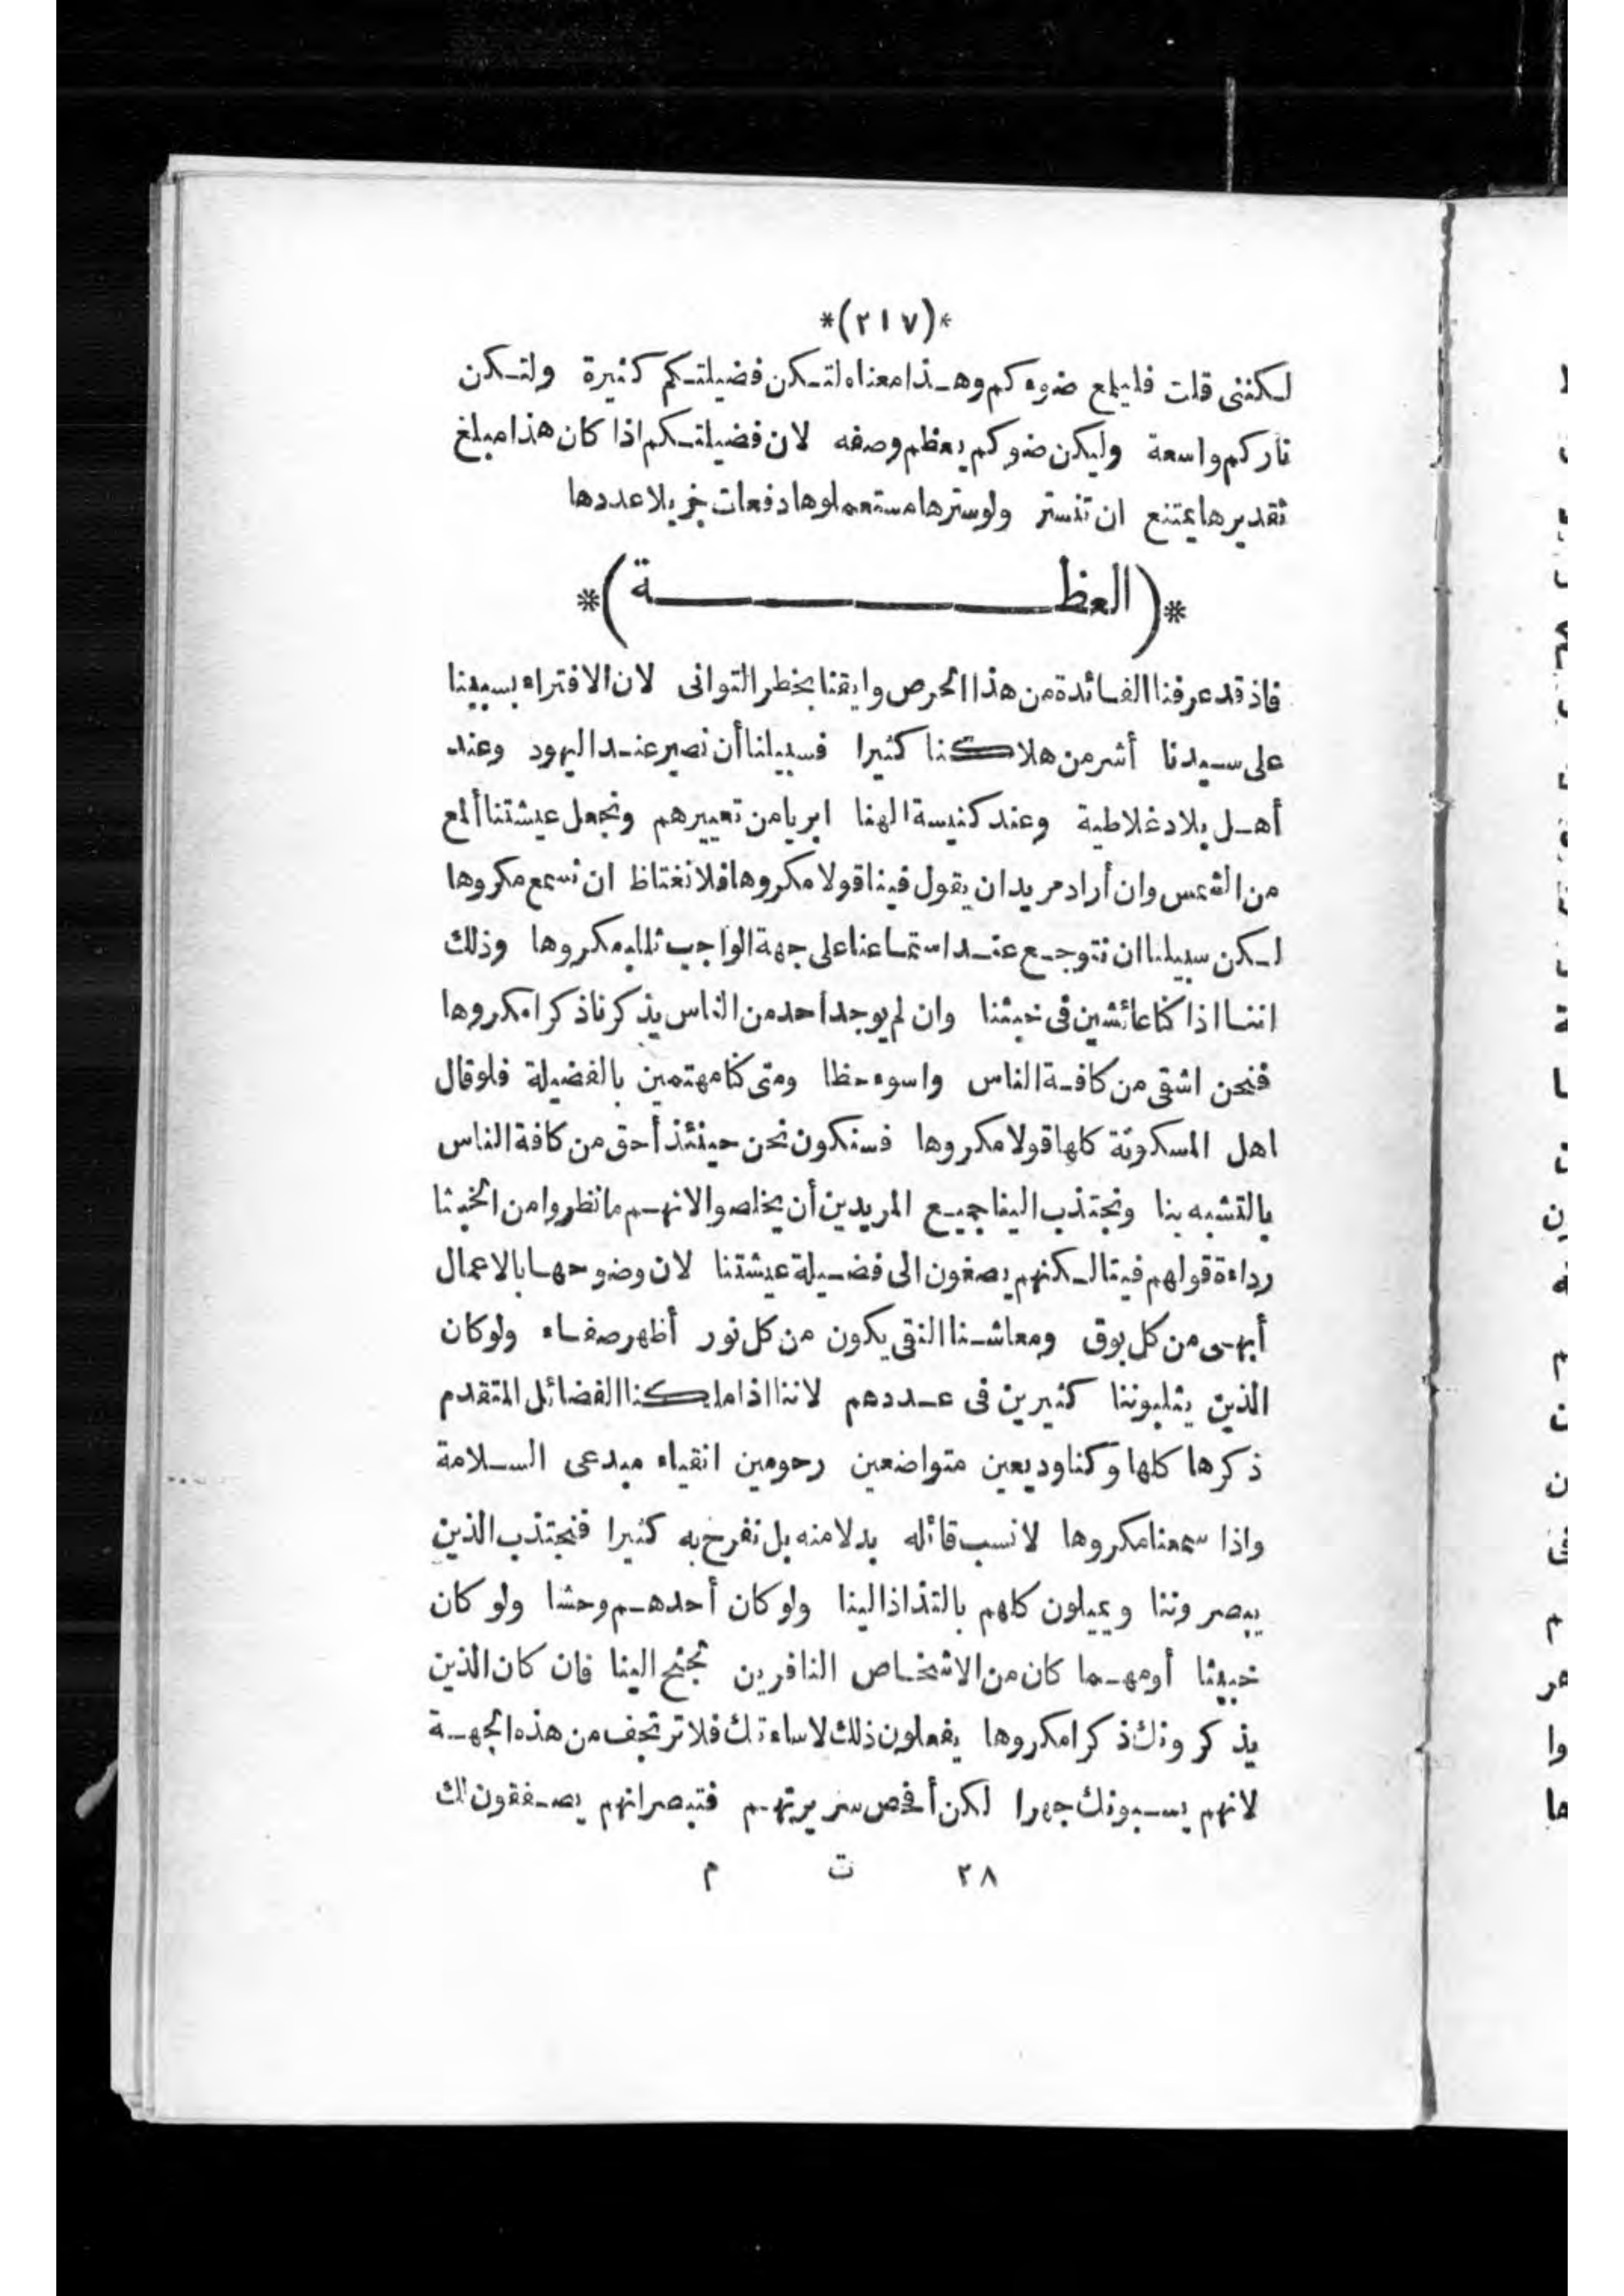 *(٢١٧)*
لكننى قلت فليلمع ضوءكم وهذا معناه لتكن فضيلتكم كثيرة ولتكن
ناركم واسعة وليكن ضوكم يعظم وصفه لان فضيلتكم اذا كان هذا مبلغ
تقديرها يمتنع ان تنستر ولو سترها مستعملوها دفعات جزيلا عددها
*(العظـــــــــة)*
فاذ قد عرفنا الفائدة من هذا الحرص وايقنا بخطر التوانى لان الافتراء بسببنا
على سيدنا أشر من هلاكنا كثيرا فسبيلنا أن نصير عند اليهود وعند
أهل بلاد غلاطية وعند كنيسة الهنا ابريا من تعييرهم ونجعل عيشتنا ألمع
من الشمس وان أراد مريد ان يقول فينا قولا مكروها فلا نغتاظ ان نسمع مكروها
لكن سبيلنا ان نتوجع عند استماعنا على جهة الواجب ثلبا مكروها وذلك
اننا اذا كنا عائشين فى خبثنا وان لم يوجد أحد من الناس يذكرنا ذكرا مكروها
فنحن اشقى من كافة الناس واسوء حظا ومتى كنا مهتمين بالفضيلة فلو قال
اهل المسكونة كلها قولا مكروها فسنكون نحن حينئذ أحق من كافة الناس
بالتشبه بنا ونجتذب الينا جميع المريدين أن يخلصوا لانهم ما نظروا من الخبثا
رداءة قولهم فينا لكنهم يصغون الى فضيلة عيشتنا لان وضوحها بالاعمال
أبهى من كل بوق ومعاشنا النقى يكون من كل نور أظهر صفاء ولو كان
الذين يثلبوننا كثيرين فى عددهم لاننا اذا ملكنا الفضائل المتقدم
ذكرها كلها وكنا وديعين متواضعين رحومين انقياء مبدعى السلامة
واذا سمعنا مكروها لا نسب قائله بدلا منه بل نفرح به كثيرا فنجتذب الذين
يبصروننا ويميلون كلهم بالتذاذ الينا ولو كان أحدهم وحشا ولو كان
خبيثا أو مهما كان من الاشخاص النافرين تجنح الينا فان كان الذين
يذكرونك ذكرا مكروها يفعلون ذلك لاساءتك فلا ترتجف من هذه الجهة
لانهم يسبونك جهرا لكن أفحص سريرتهم فتبصر انهم يصفقون لك
٢٨ ت م